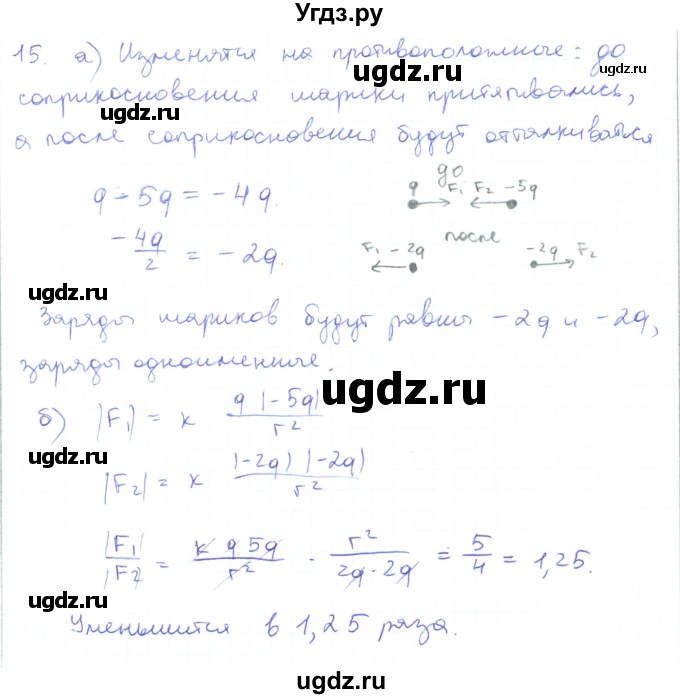 Угдз.ру
15. а) Изменятся на противоположные: до
соприкосновения шарики притягивались,
а после соприкосновения будут отталкиваться
ugdz.ru
ugdz.ru
ugdz.ru
q - 5q = -4q.
до
q F₁ F₂ -5q
-4q/2 = -2q.
после
F₁ -2q
-2q F₂
ugdz.ru
Заряды шариков будут равны -2q и -2q,
заряды одноименные.
ugdz.ru
б) |F₁| = k q |-5q| / r²
ugdz.ru
|F₂| = k |-2q| |-2q| / r²
|F₁|/|F₂| = k q 5q / r² · r² / 2q · 2q = 5/4 = 1,25.
ugdz.ru
Уменьшится в 1,25 раза.
ugdz.ru
ugdz.ru